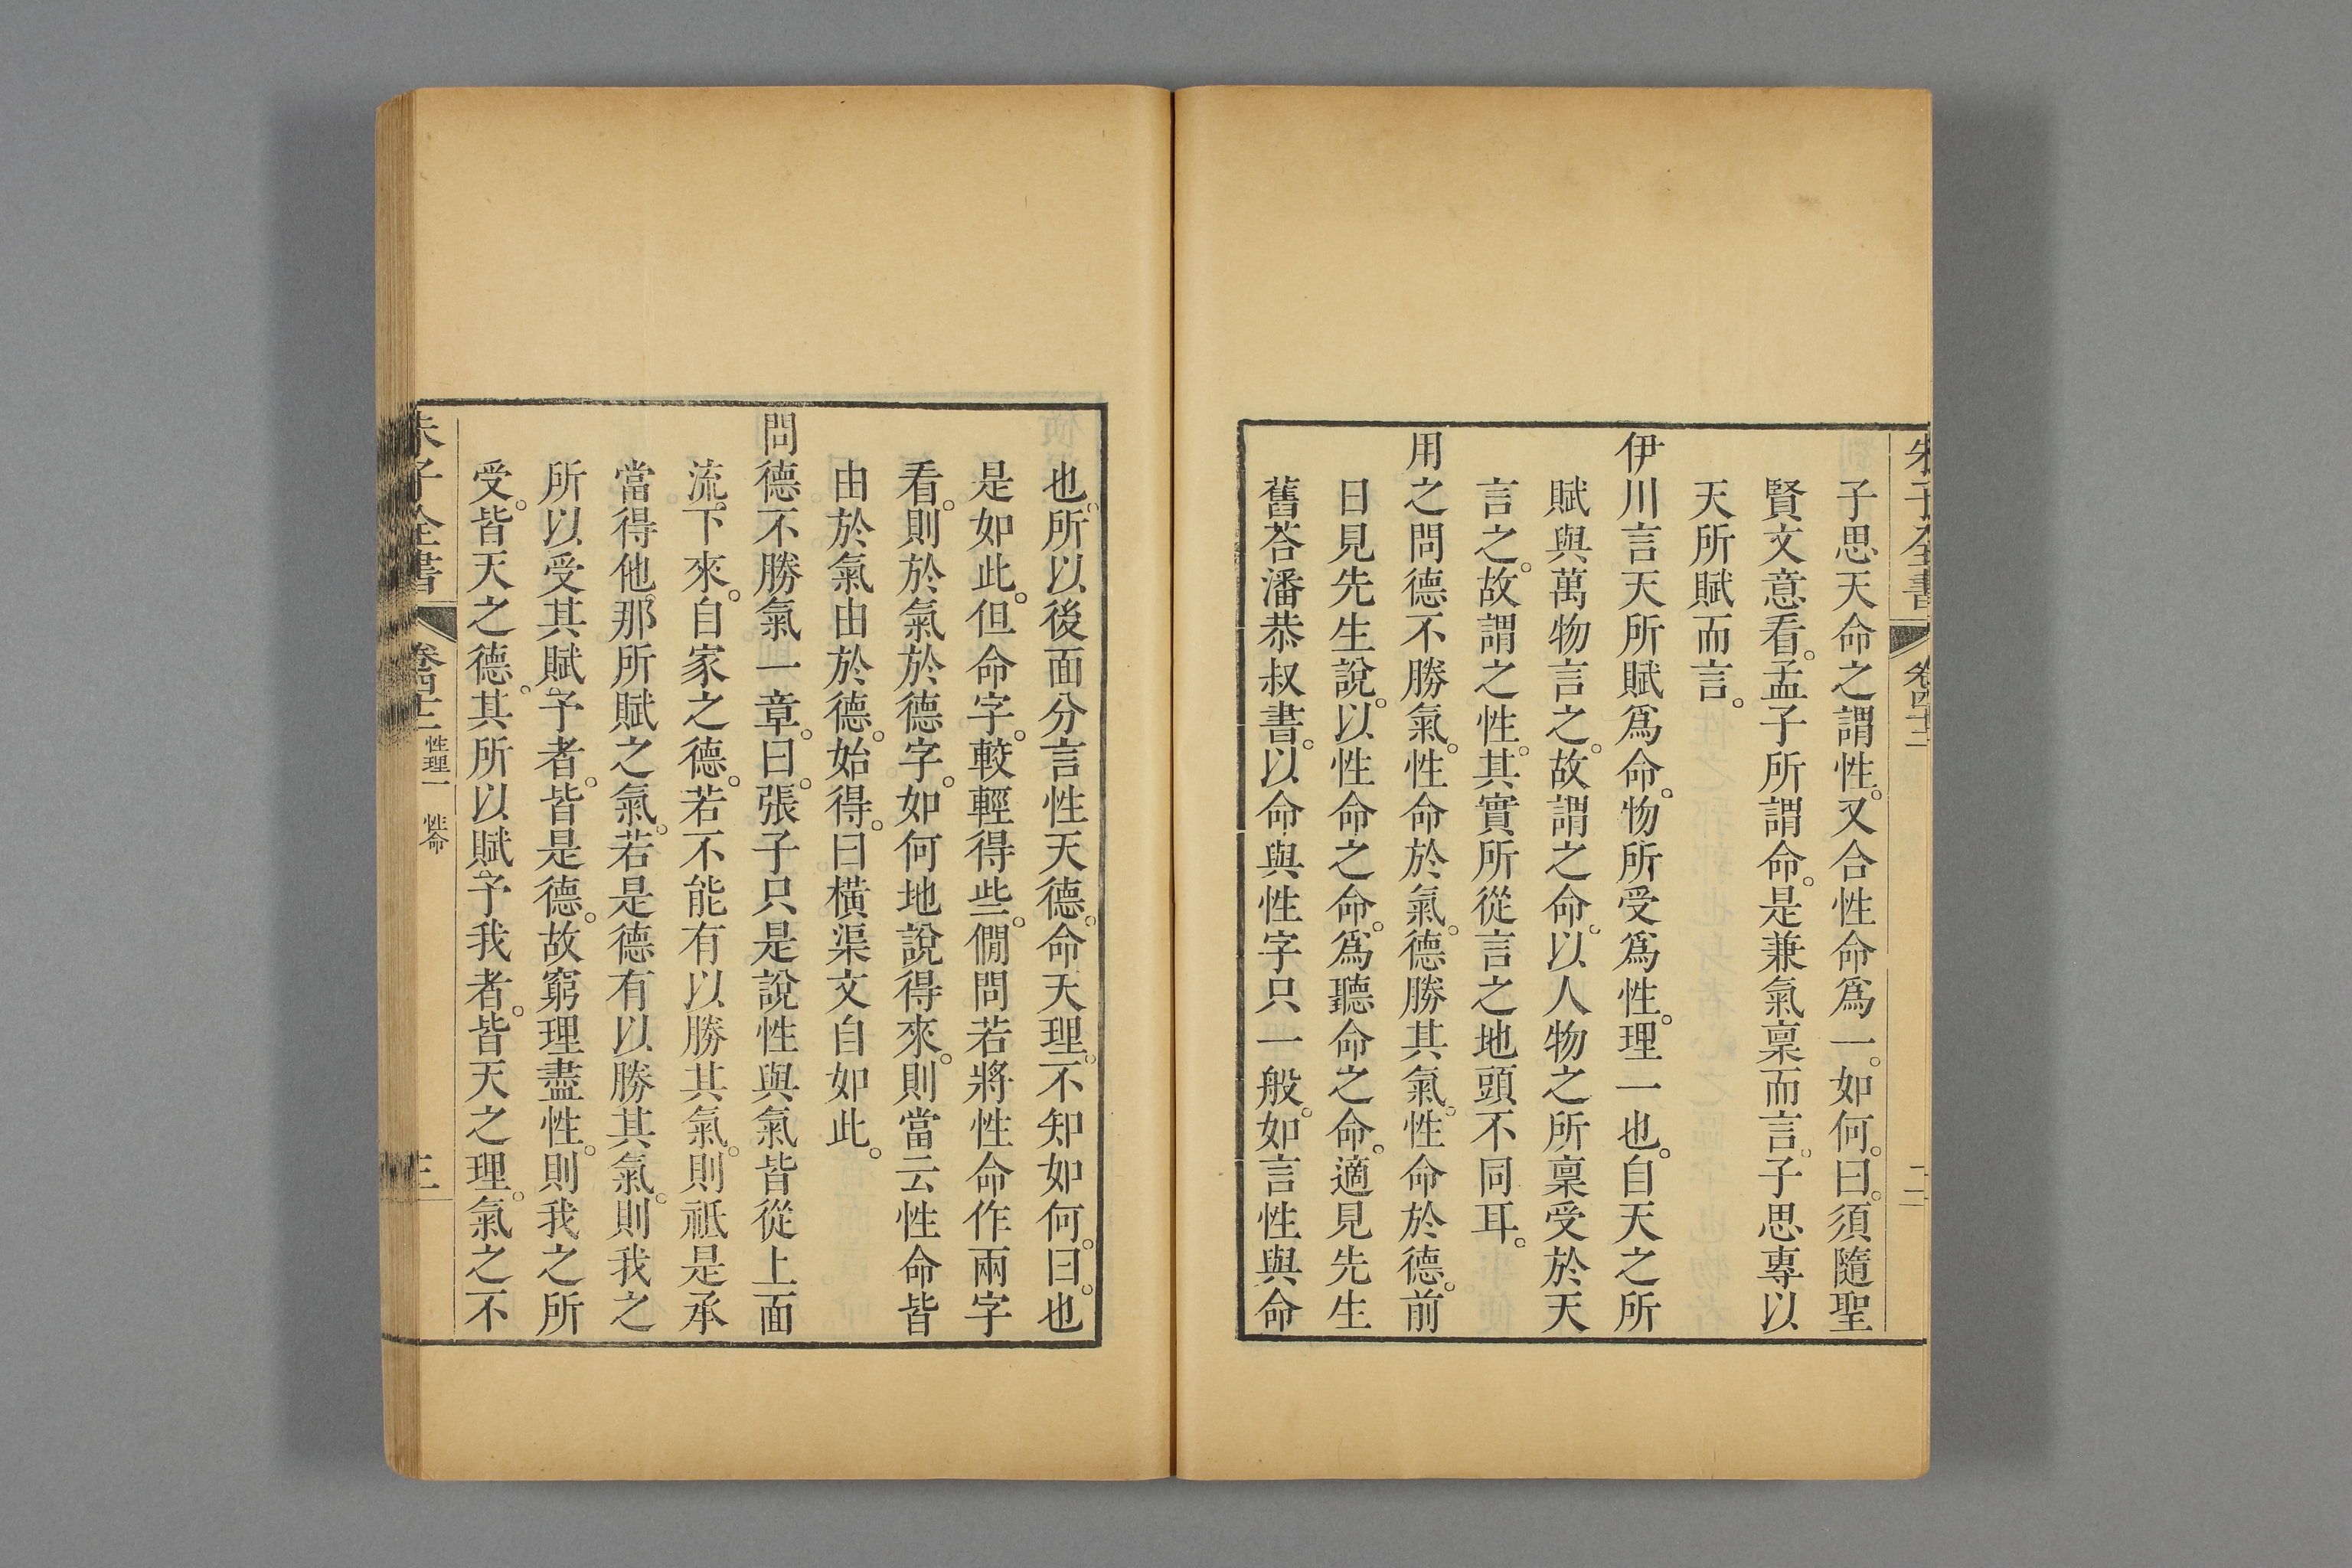 朱子全書 卷四十二 二
子思天命之謂性。又合性命爲一。如何。曰。須隨聖
賢文意看。孟子所謂命。是兼氣稟而言。子思專以
天所賦而言。
伊川言天所賦爲命。物所受爲性。理一也。自天之所
賦與萬物言之。故謂之命。以人物之所稟受於天
言之。故謂之性。其實所從言之地頭不同耳。
用之問德不勝氣。性命於氣。德勝其氣。性命於德。前
日見先生說。以性命之命。爲聽命之命。適見先生
舊荅潘恭叔書。以命與性字只一般。如言性與命
也。所以後面分言性天德。命天理。不知如何。曰。也
是如此。但命字。較輕得些。僩問若將性命作兩字
看。則於氣於德字。如何地說得來。則當云性命皆
由於氣由於德。始得。曰橫渠文自如此。
問德不勝氣一章。曰。張子只是說性與氣皆從上面
流下來。自家之德。若不能有以勝其氣。則祇是承
當得他那所賦之氣。若是德有以勝其氣。則我之
所以受其賦予者。皆是德。故窮理盡性。則我之所
受。皆天之德。其所以賦予我者。皆天之理。氣之不
朱子全書 卷四十二 性理一 性命 三